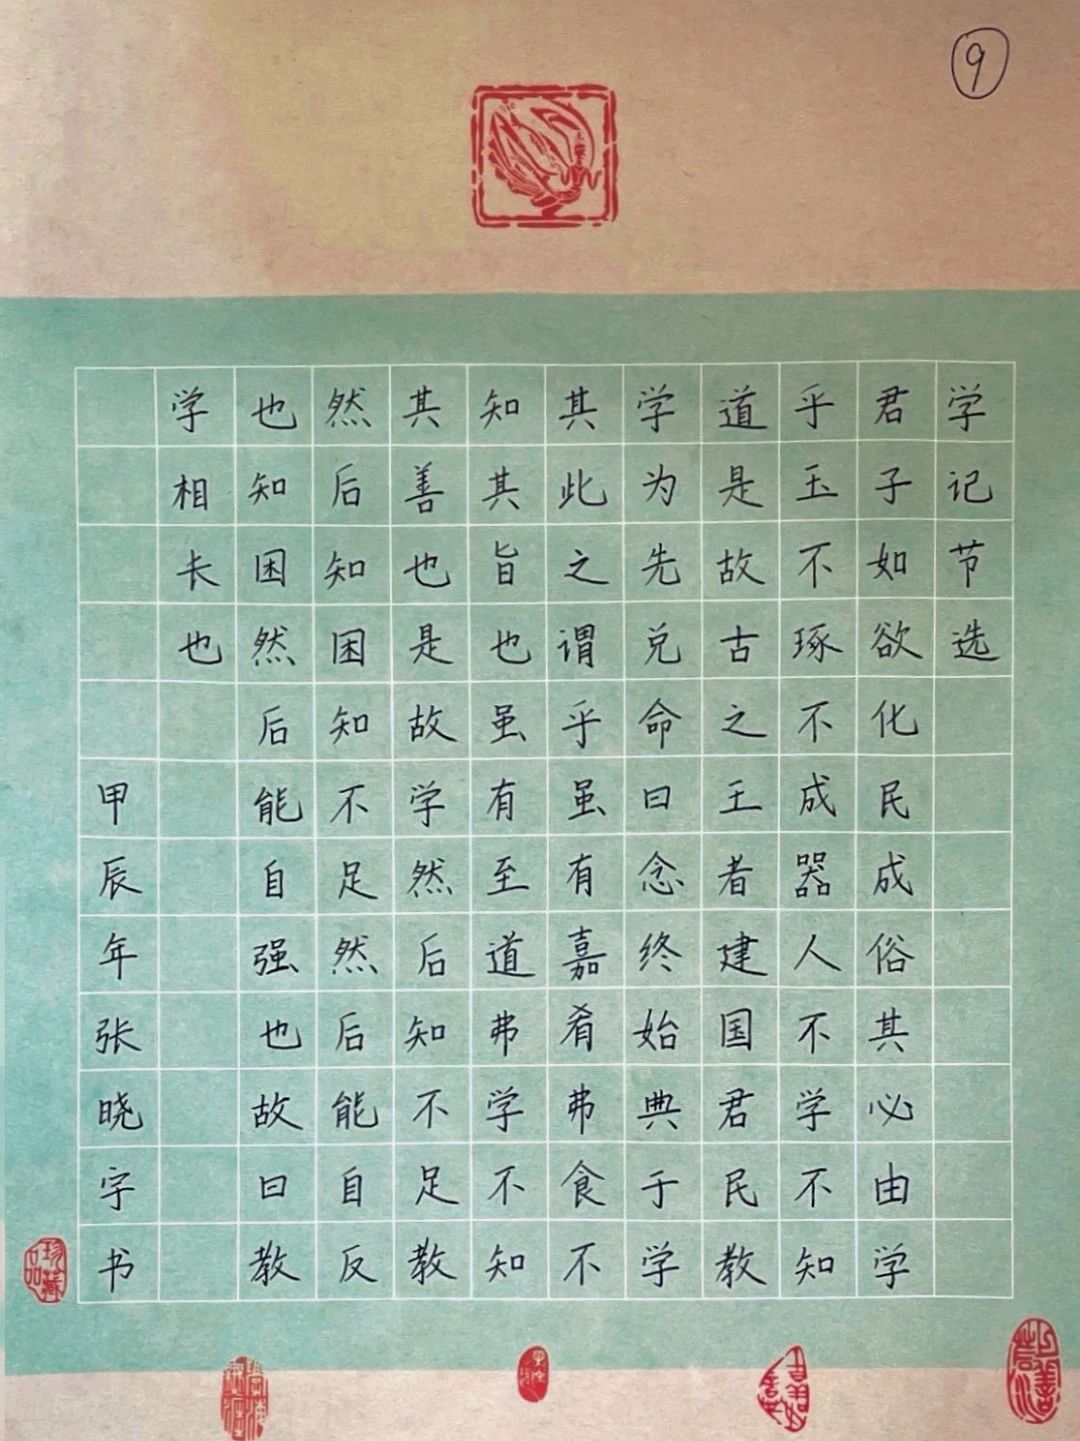 9
学记节选
君子如欲化民成俗其必由学
乎玉不琢不成器人不学不知
道是故古之王者建国君民教
学为先兑命曰念终始典于学
其此之谓乎虽有嘉肴弗食不
知其旨也虽有至道弗学不知
其善也是故学然后知不足教
然后知困知不足然后能自反
也知困然后能自强也故曰教
学相长也
甲辰年张晓字书